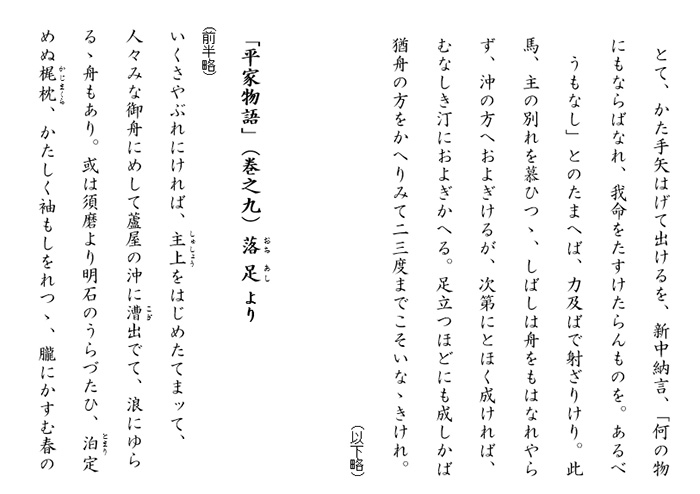 とて、かた手矢はげて出けるを、新中納言、「何の物
にもならばなれ、我命をたすけたらんものを。あるべ
うもなし」とのたまへば、力及ばで射ざりけり。此
馬、主の別れを慕ひつゝ、しばしは舟をもはなれやら
ず、沖の方へおよぎけるが、次第にとほく成ければ、
むなしき汀におよぎかへる。足立つほどにも成しかば
猶舟の方をかへりみて二三度までこそいなゝきけれ。
（以下略）
「平家物語」（巻之九）落足より
おち あし
（前半略）
いくさやぶれにければ、主上をはじめたてまッて、
しゅしょう
人々みな御舟にめして蘆屋の沖に漕出でて、浪にゆら
こぎ
るゝ舟もあり。或は須磨より明石のうらづたひ、泊定
とまり
めぬ梶枕、かたしく袖もしをれつゝ、朧にかすむ春の
かじまくら